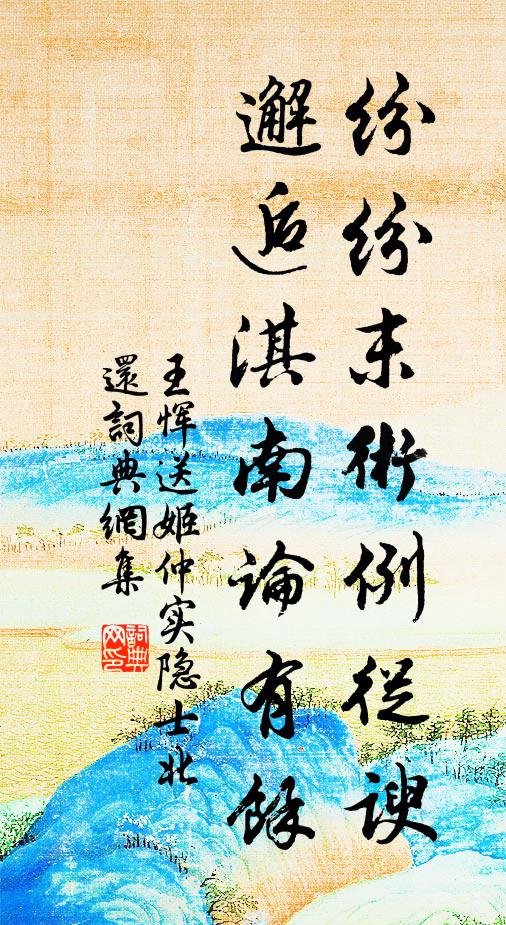 纷纷末術例從諛
邂逅淇南論有餘
王恽送姬仲实隐士北
還詞典網集
詞典网印